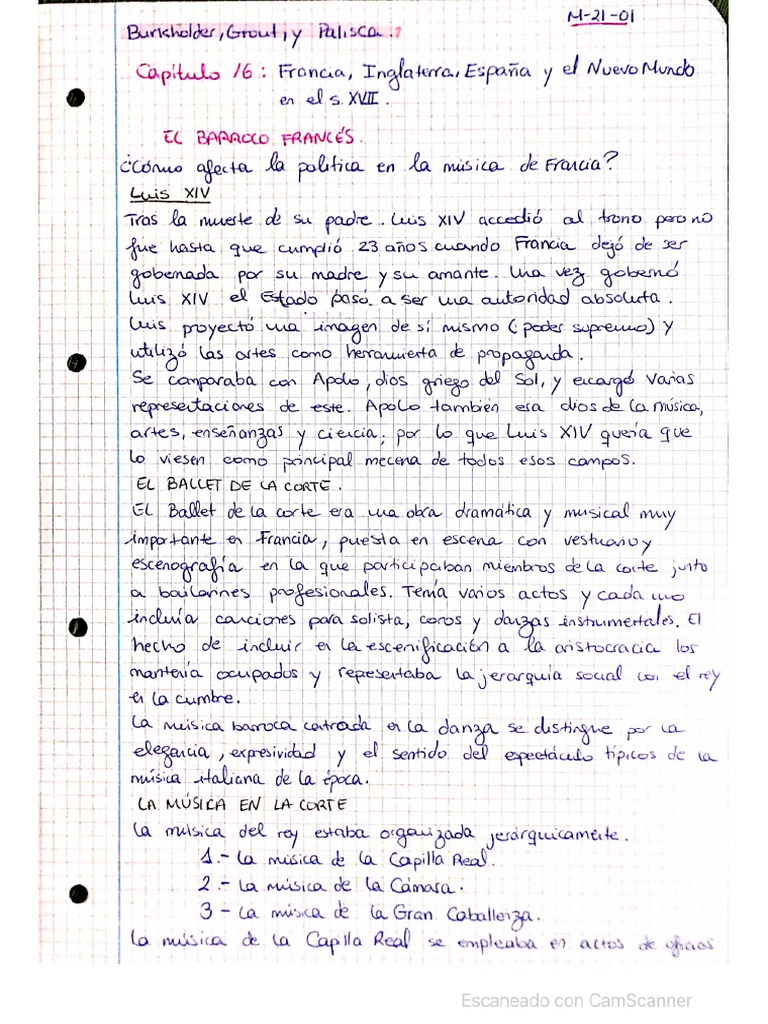 M-21-01
Burkholder, Grout, y Palisca.
Capítulo 16: Francia, Inglaterra, España y el Nuevo Mundo
en el s. XVII.
EL BARROCO FRANCÉS.
¿Cómo afecta la política en la música de Francia?
Luis XIV
Tras la muerte de su padre. Luis XIV accedió al trono pero no
fue hasta que cumplió 23 años cuando Francia dejó de ser
gobenada por su madre y su amante. Una vez gobernó
Luis XIV el Estado pasó a ser una autoridad absoluta.
Luis proyectó una imagen de sí mismo (:poder supremo) y
utilizó las artes como herramienta de propaganda.
Se comparaba con Apolo, dios griego del Sol, y encargó varias
representaciones de este. Apolo también era dios de la música,
artes, enseñanzas y ciencia; por lo que Luis XIV quería que
lo viesen como principal mecena de todos esos campos.
EL BALLET DE LA CORTE.
El Ballet de la corte era una obra dramática y musical muy
importante en Francia, puesta en escena con vestuario y
escenografía en la que participaban miembros de la corte junto
a bailarines profesionales. Tenía varios actos y cada uno
incluía canciones para solista, coros y danzas instrumentales. El
hecho de incluir en la escenificación a la aristocracia los
mantenía ocupados y representaba la jerarquía social con el rey
en la cumbre.
La música barroca centrada en la danza se distingue por la
elegancia, expresividad y el sentido del espectáculo típicos de la
música italiana de la época.
LA MÚSICA EN LA CORTE
La música del rey estaba organizada jerárquicamente.
1.- La música de la Capilla Real.
2.- La música de la Cámara.
3 - La música de la Gran Caballeriza.
La música de la Capilla Real se empleaba en actos de oficios
Escaneado con CamScanner